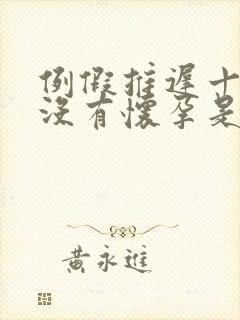 例假推遲十
沒有懷孕是
黃永進